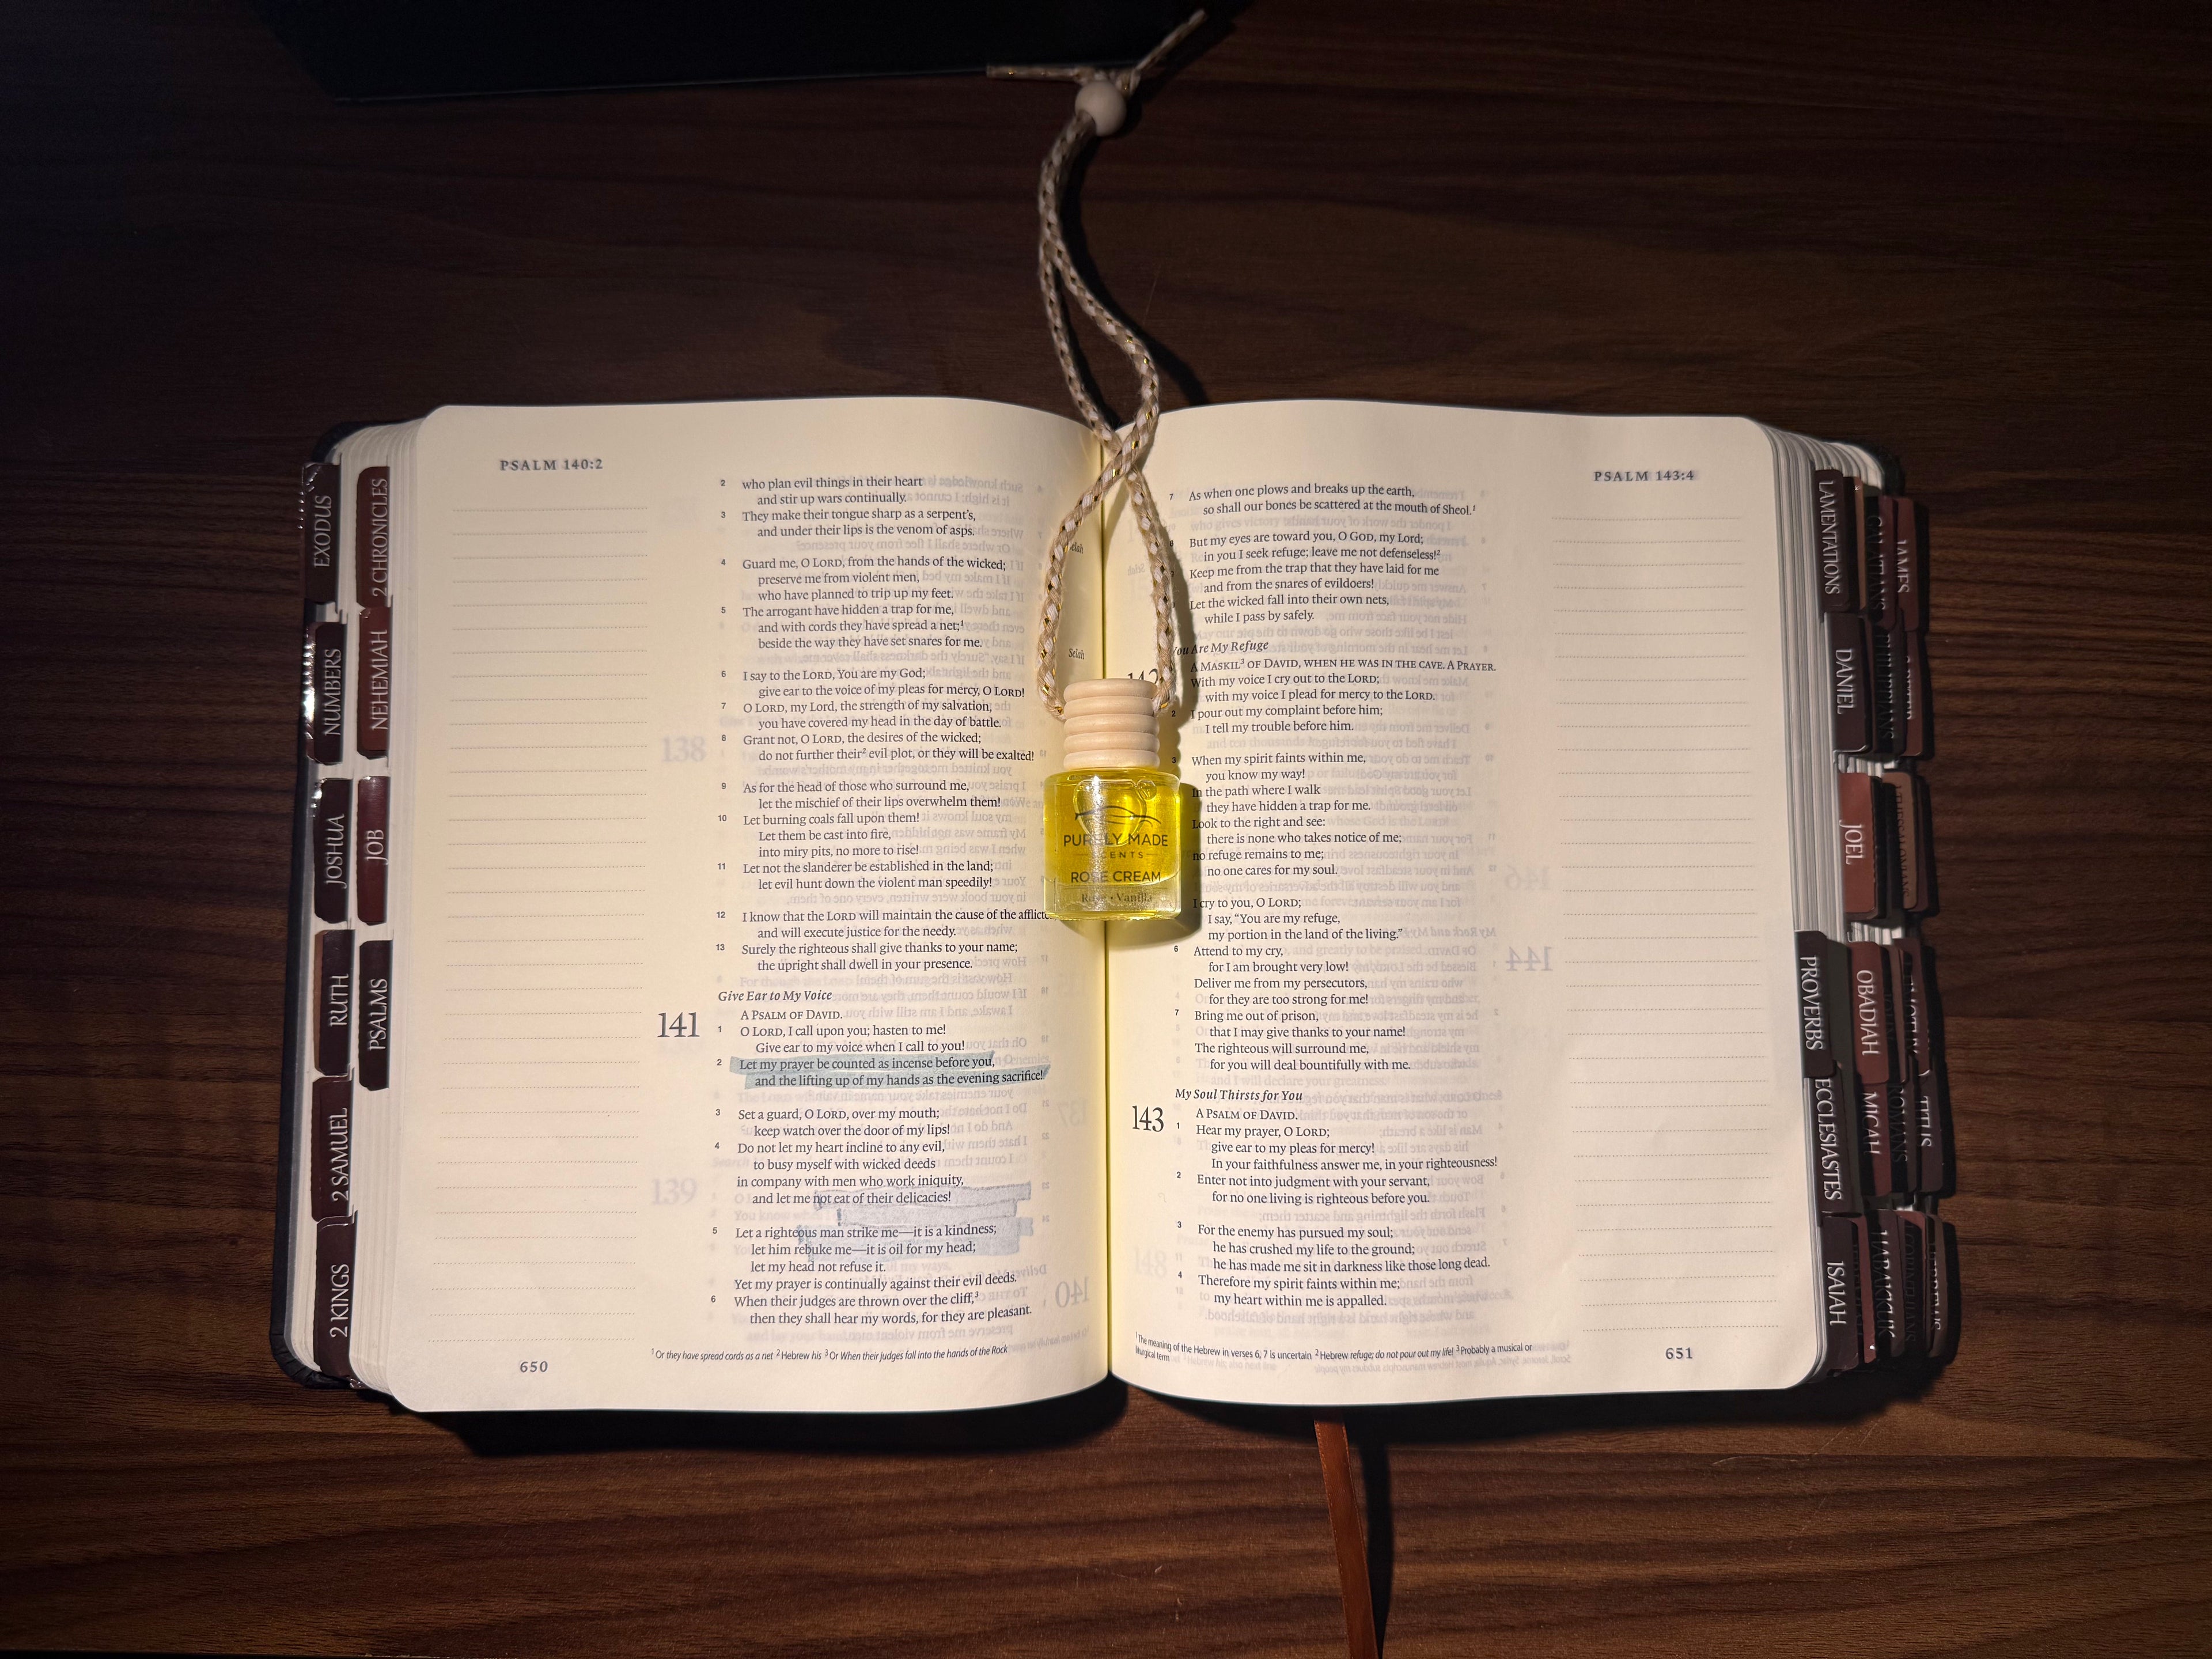 PSALM 140:2
2 who plan evil things in their heart
and stir up wars continually.
3 They make their tongue sharp as a serpent's,
and under their lips is the venom of asps.
Selah
4 Guard me, O LORD, from the hands of the wicked;
preserve me from violent men,
who have planned to trip up my feet.
5 The arrogant have hidden a trap for me,
and with cords they have spread a net;1
beside the way they have set snares for me.
Selah
6 I say to the LORD, You are my God;
give ear to the voice of my pleas for mercy, O LORD!
7 O LORD, my Lord, the strength of my salvation,
you have covered my head in the day of battle.
8 Grant not, O LORD, the desires of the wicked;
do not further their2 evil plot, or they will be exalted!
9 As for the head of those who surround me,
let the mischief of their lips overwhelm them!
10 Let burning coals fall upon them!
Let them be cast into fire,
into miry pits, no more to rise!
11 Let not the slanderer be established in the land;
let evil hunt down the violent man speedily!
12 I know that the LORD will maintain the cause of the afflict
and will execute justice for the needy.
13 Surely the righteous shall give thanks to your name;
the upright shall dwell in your presence.
Give Ear to My Voice
141 A PSALM OF DAVID.
1 O LORD, I call upon you; hasten to me!
Give ear to my voice when I call to you!
2 Let my prayer be counted as incense before you,
and the lifting up of my hands as the evening sacrifice!
3 Set a guard, O LORD, over my mouth;
keep watch over the door of my lips!
4 Do not let my heart incline to any evil,
to busy myself with wicked deeds
in company with men who work iniquity,
and let me not eat of their delicacies!
5 Let a righteous man strike me—it is a kindness;
let him rebuke me—it is oil for my head;
let my head not refuse it.
Yet my prayer is continually against their evil deeds.
6 When their judges are thrown over the cliff,3
then they shall hear my words, for they are pleasant.
1 Or they have spread cords as a net 2 Hebrew his 3 Or When their judges fall into the hands of the Rock
650
PSALM 143:4
7 As when one plows and breaks up the earth,
so shall our bones be scattered at the mouth of Sheol.1
8 But my eyes are toward you, O GOD, my Lord;
in you I seek refuge; leave me not defenseless!2
Keep me from the trap that they have laid for me
and from the snares of evildoers!
Let the wicked fall into their own nets,
while I pass by safely.
You Are My Refuge
142 A MASKIL3 OF DAVID, WHEN HE WAS IN THE CAVE. A PRAYER.
With my voice I cry out to the LORD;
with my voice I plead for mercy to the LORD.
2 I pour out my complaint before him;
I tell my trouble before him.
3 When my spirit faints within me,
you know my way!
In the path where I walk
they have hidden a trap for me.
Look to the right and see:
there is none who takes notice of me;
no refuge remains to me;
no one cares for my soul.
I cry to you, O LORD;
I say, "You are my refuge,
my portion in the land of the living."
6 Attend to my cry,
for I am brought very low!
Deliver me from my persecutors,
for they are too strong for me!
7 Bring me out of prison,
that I may give thanks to your name!
The righteous will surround me,
for you will deal bountifully with me.
My Soul Thirsts for You
143 A PSALM OF DAVID.
1 Hear my prayer, O LORD;
give ear to my pleas for mercy!
In your faithfulness answer me, in your righteousness!
2 Enter not into judgment with your servant,
for no one living is righteous before you.
3 For the enemy has pursued my soul;
he has crushed my life to the ground;
he has made me sit in darkness like those long dead.
4 Therefore my spirit faints within me;
my heart within me is appalled.
1 The meaning of the Hebrew in verses 6, 7 is uncertain 2 Hebrew refuge; do not pour out my life! 3 Probably a musical or
liturgical term
651
PURELY MADE
SCENTS
ROSE CREAM
Rose • Vanilla
EXODUS
NUMBERS
JOSHUA
RUTH
2 SAMUEL
2 KINGS
2 CHRONICLES
NEHEMIAH
JOB
PSALMS
LAMENTATIONS
DANIEL
JOEL
PROVERBS
OBADIAH
ECCLESIASTES
MICAH
ISAIAH
HABAKKUK
JAMES
TITUS
ROMANS